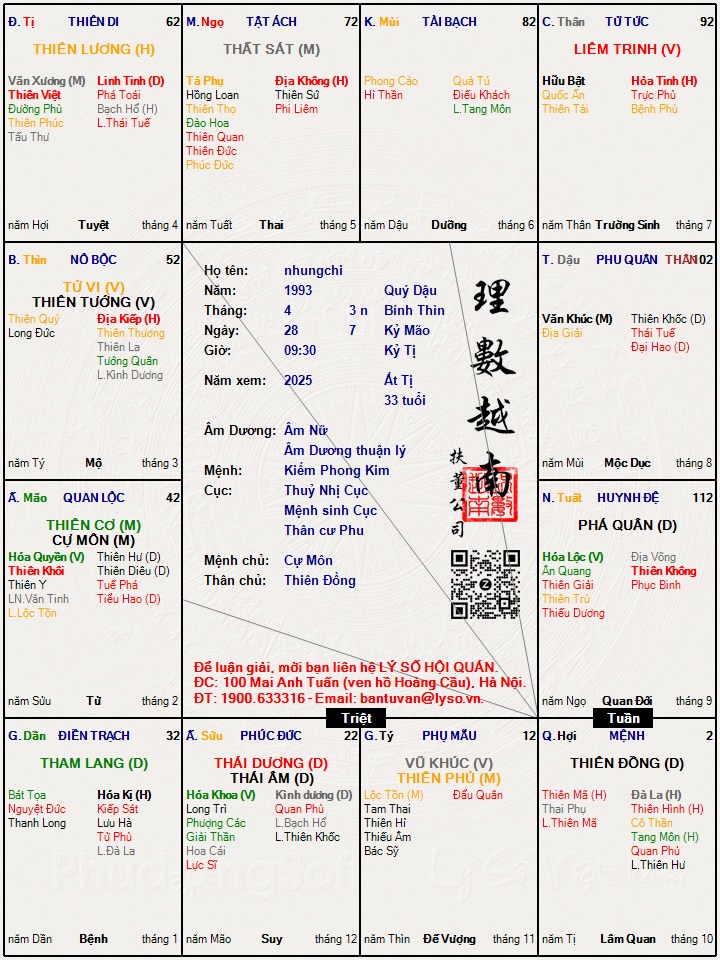 Đ. Tị THIÊN DI 62
THIÊN LƯƠNG (H)
Văn Xương (M) Linh Tinh (D)
Thiên Việt Phá Toái
Đường Phù Bạch Hổ (H)
Thiên Phúc L.Thái Tuế
Tấu Thư
năm Hợi Tuyệt tháng 4
M. Ngọ TẬT ÁCH 72
THẤT SÁT (M)
Tả Phụ Địa Không (H)
Hồng Loan Thiên Sứ
Thiên Thọ Phi Liêm
Đào Hoa
Thiên Quan
Thiên Đức
Phúc Đức
năm Tuất Thai tháng 5
K. Mùi TÀI BẠCH 82
Phong Cáo Quả Tú
Hỉ Thần Điếu Khách
L.Tang Môn
năm Dậu Dưỡng tháng 6
C. Thân TỬ TỨC 92
LIÊM TRINH (V)
Hữu Bật Hỏa Tinh (H)
Quốc Ấn Trực Phù
Thiên Tài Bệnh Phù
năm Thân Trường Sinh tháng 7
B. Thìn NÔ BỘC 52
TỬ VI (V)
THIÊN TƯỚNG (V)
Thiên Quý Địa Kiếp (H)
Long Đức Thiên Thương
Thiên La
Tướng Quân
L.Kình Dương
năm Tý Mộ tháng 3
Họ tên: nhungchi
Năm: 1993 Quý Dậu
Tháng: 4 3 n Bính Thìn
Ngày: 28 7 Kỷ Mão
Giờ: 09:30 Kỷ Tị
Năm xem: 2025 Ất Tị
33 tuổi
Âm Dương: Âm Nữ
Âm Dương thuận lý
Mệnh: Kiếm Phong Kim
Cục: Thuỷ Nhị Cục
Mệnh sinh Cục
Thân cư Phu
Mệnh chủ: Cự Môn
Thân chủ: Thiên Đồng
理數越南
扶董公司
Z
Để luận giải, mời bạn liên hệ LÝ SỐ HỘI QUÁN.
ĐC: 100 Mai Anh Tuấn (ven hồ Hoàng Cầu), Hà Nội.
ĐT: 1900.633316 - Email: bantuvan@lyso.vn.
T. Dậu PHU QUÂN THÂN 102
Văn Khúc (M) Thiên Khốc (D)
Địa Giải Thái Tuế
Đại Hao (D)
năm Mùi Mộc Dục tháng 8
Ấ. Mão QUAN LỘC 42
THIÊN CƠ (M)
CỰ MÔN (M)
Hóa Quyền (V) Thiên Hư (D)
Thiên Khôi Thiên Diêu (D)
Thiên Y Tuế Phá
LN.Văn Tinh Tiểu Hao (D)
L.Lộc Tồn
năm Sửu Tử tháng 2
N. Tuất HUYNH ĐỆ 112
PHÁ QUÂN (D)
Hóa Lộc (V) Địa Võng
Ân Quang Thiên Không
Thiên Giải Phục Binh
Thiên Trù
Thiếu Dương
năm Ngọ Quan Đới tháng 9
Triệt
Tuần
G. Dần ĐIỀN TRẠCH 32
THAM LANG (D)
Bát Tọa Hóa Kị (H)
Nguyệt Đức Kiếp Sát
Thanh Long Lưu Hà
Tử Phù
L.Đà La
năm Dần Bệnh tháng 1
Ấ. Sửu PHÚC ĐỨC 22
THÁI DƯƠNG (D)
THÁI ÂM (D)
Hóa Khoa (V) Kình dương (D)
Long Trì Quan Phù
Phượng Các L.Bạch Hổ
Giải Thần L.Thiên Khốc
Hoa Cái
Lực Sĩ
năm Mão Suy tháng 12
G. Tý PHỤ MẪU 12
VŨ KHÚC (V)
THIÊN PHỦ (M)
Lộc Tồn (M) Đẩu Quân
Tam Thai
Thiên Hỉ
Thiếu Âm
Bác Sỹ
năm Thìn Đế Vượng tháng 11
Q. Hợi MỆNH 2
THIÊN ĐỒNG (D)
Thiên Mã (H) Đà La (H)
Thai Phụ Thiên Hình (H)
L.Thiên Mã Cô Thần
Tang Môn (H)
Quan Phủ
L.Thiên Hư
năm Tị Lâm Quan tháng 10